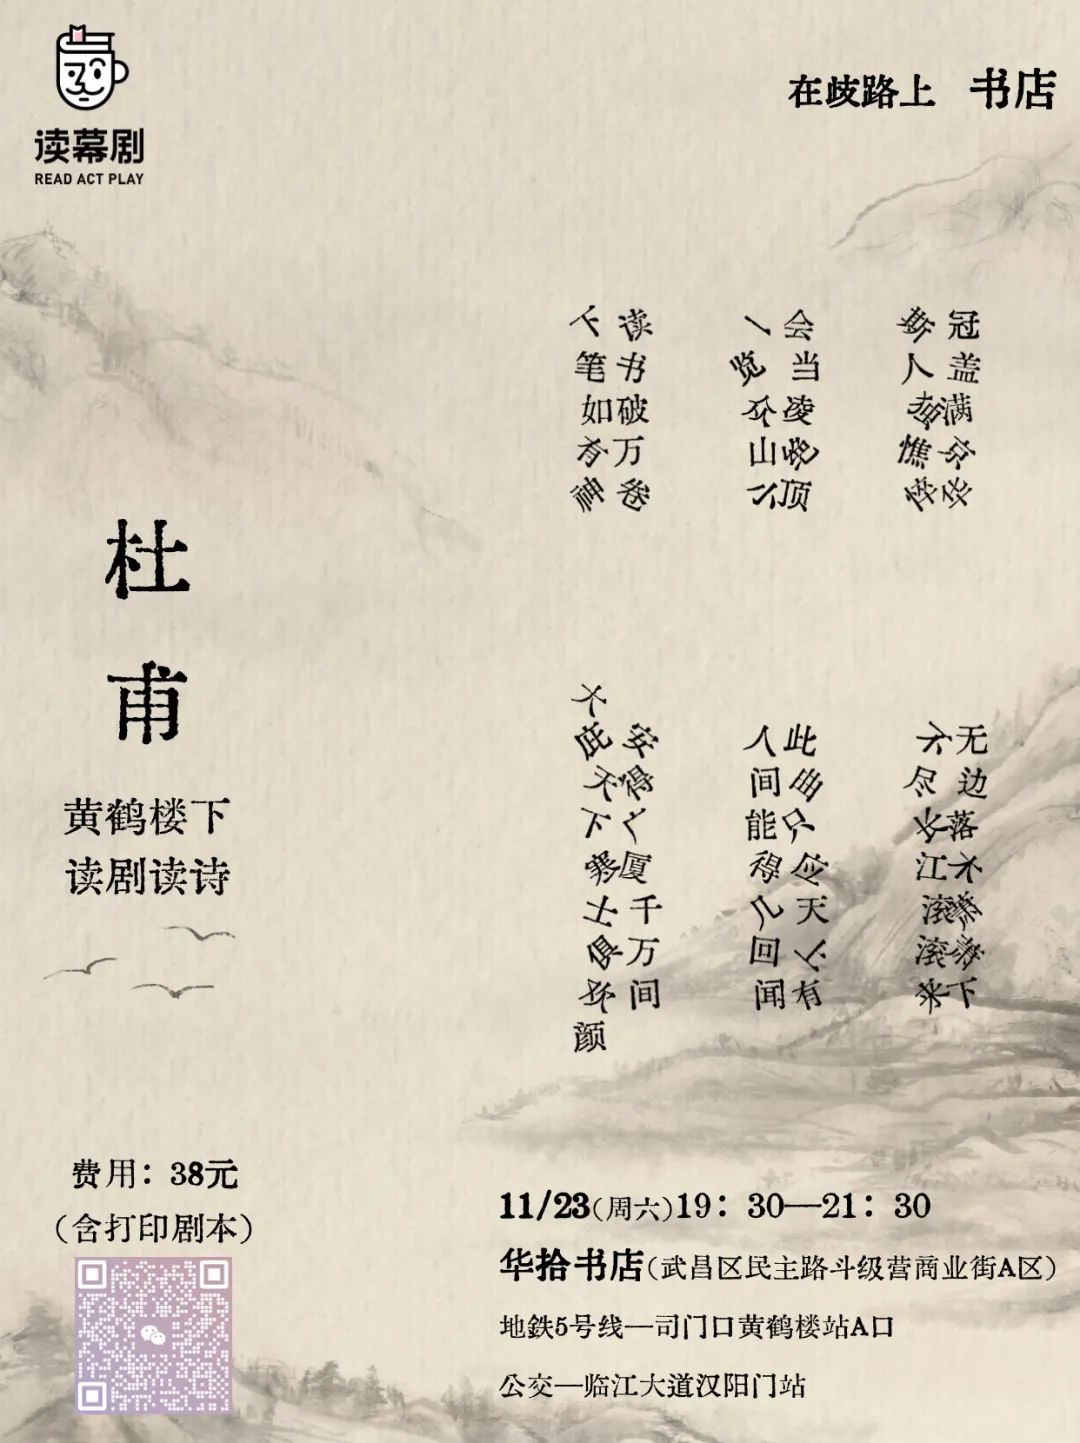 读幕剧
READ ACT PLAY
在歧路上 书店
冠盖满京华
斯人独憔悴
会当凌绝顶
一览众山小
读书破万卷
下笔如有神
无边落木萧萧下
不尽长江滚滚来
此曲只应天上有
人间能得几回闻
安得广厦千万间
大庇天下寒士俱欢颜
杜甫
黄鹤楼下
读剧读诗
费用：38元
（含打印剧本）
11/23（周六）19：30—21：30
华拾书店（武昌区民主路斗级营商业街A区）
地鉄5号线—司门口黄鹤楼站A口
公交—临江大道汉阳门站